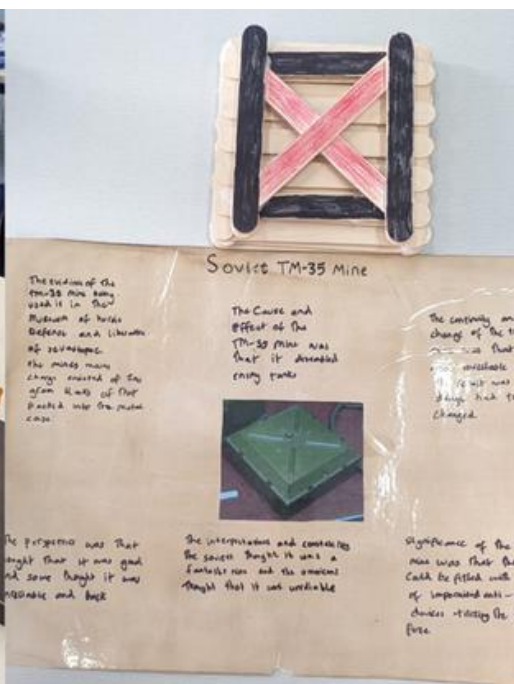 Soviet TM-35 Mine
The evidence of the
TM-35 mine being
used is in the
Museum of heroic
Defence and Liberation
of sevastopol
the mines main
charge consisted of
gram blocks of TNT
packed into the metal
case.
The Cause and
effect of the
TM-35 mine was
that it disembled
enemy tanks
The continuity an
change of the t
was that
unreliable
result was
design had t
changed
The perspective was that
thought that it was good
nd some thought it was
and back
The interpretations and
the soviets thought it was a
fantastic and the americans
thought that it was unreliable
Significance of the
mine was that the
Could be fitted with
of improvised anti-
devices utilising the
fuze